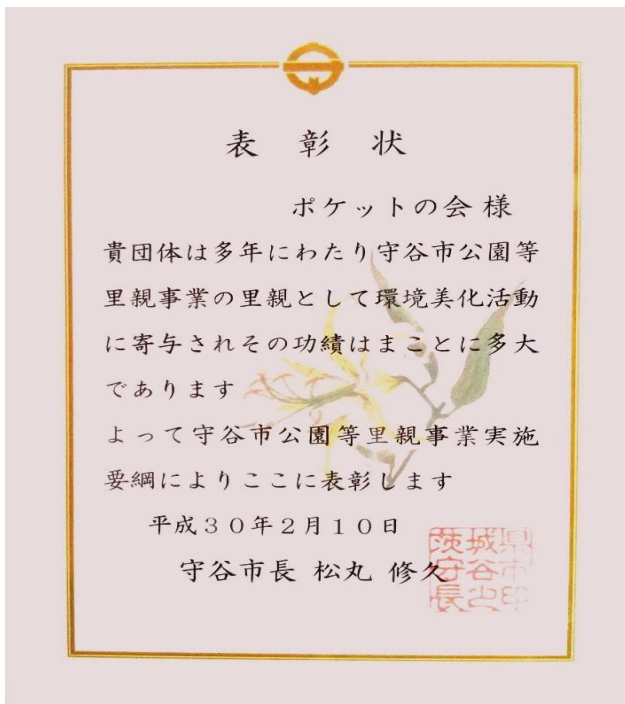 表 彰 状
ポケットの会 様
貴団体は多年にわたり守谷市公園等
里親事業の里親として環境美化活動
に寄与されその功績はまことに多大
であります
よって守谷市公園等里親事業実施
要綱によりここに表彰します
平成３０年２月１０日
守谷市長 松丸 修久
茨城県
守谷市
長之印